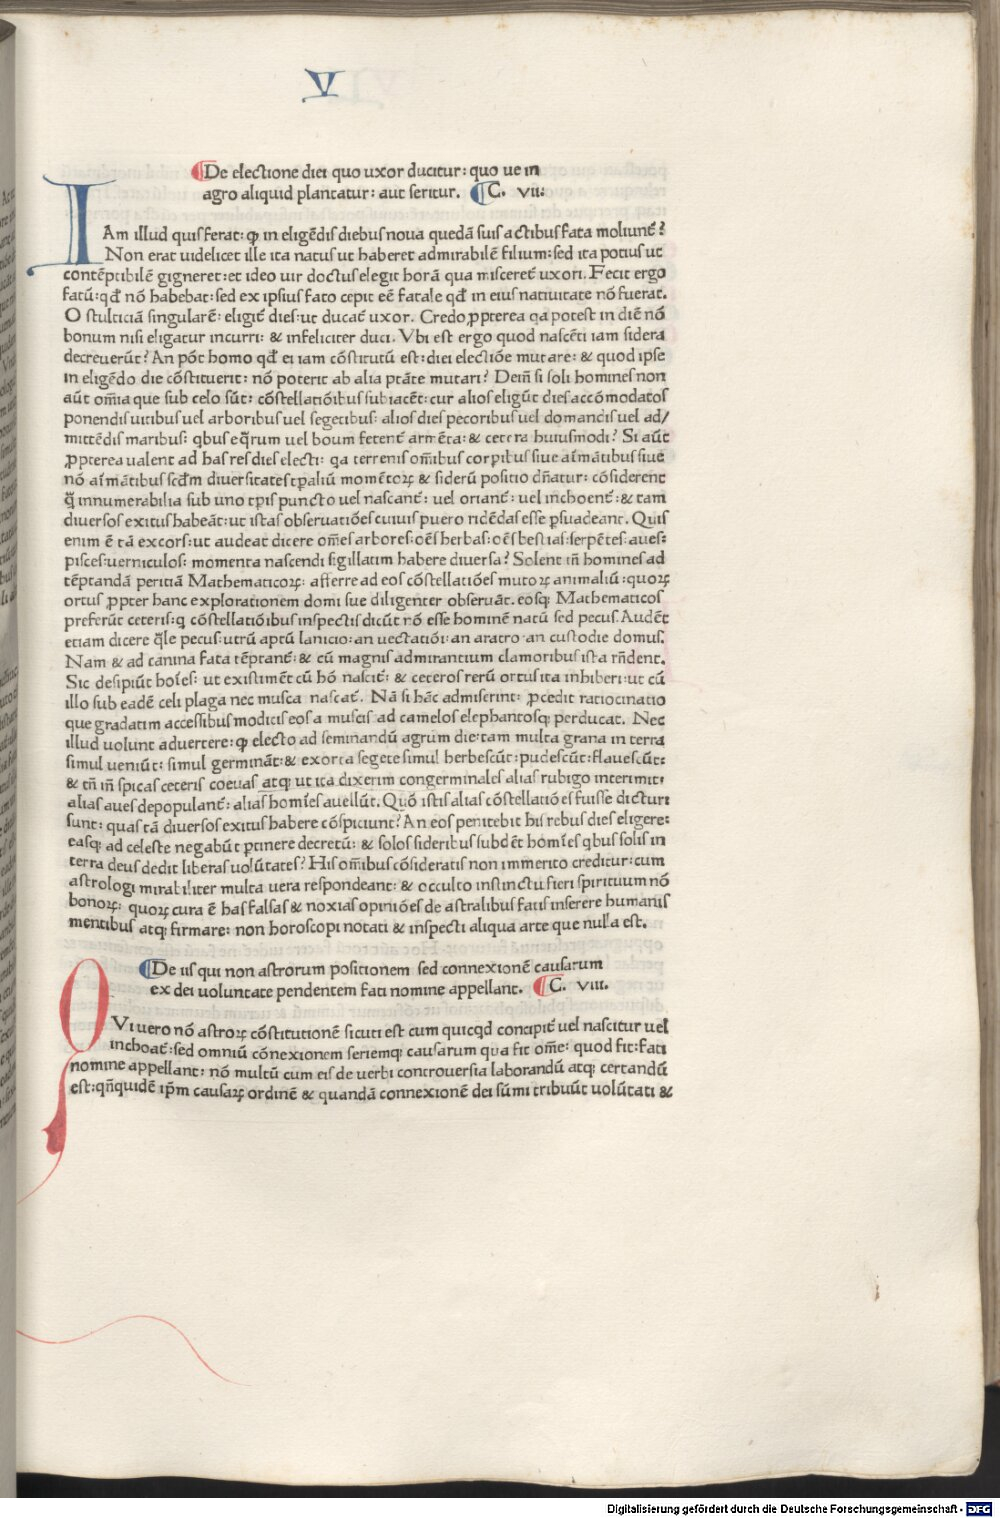 V
De electione diei quo uxor ducitur: quo ue in
agro aliquid plantatur: aut seritur. C. vii:
IAm illud quis ferat: ꝙ in eligēdis diebus noua quedā suis actibus fata moliunt᷑?
Non erat uidelicet ille ita natus ut haberet admirabilē filium: sed ita potius ut
contēptibilē gigneret: et ideo uir doctus elegit horā qua misceret᷑ uxori. Fecit ergo
fatū: qđ nō habebat: sed ex ipsius fato cepit eē fatale qđ in eius natiuitate nō fuerat.
O stulticiā singularē: eligit᷑ dies: ut ducat᷑ uxor. Credo ꝓpterea qa potest in diē nō
bonum nisi eligatur incurri: & infeliciter duci. Vbi est ergo quod nascēti iam sidera
decreuerūt? An pōt homo qđ ei iam cōstitutū est: diei electiōe mutare: & quod ipse
in eligēdo die cōstituerit: nō poterit ab alia ptāte mutari? Deiñ si soli homines non
aūt om̄ia que sub celo sūt: cōstellatiōibus subiacēt: cur alios eligūt dies accōmodatos
ponendis uitibus uel arboribus uel segetibus: alios dies pecoribus uel domandis uel ad/
mittēdis maribus: qbus eq̄rum uel boum fetent᷑ armēta: & cetera huiusmodi? Si aūt
ꝓpterea ualent ad has res dies electi: qa terrenis om̄ibus corpibus siue aīmātibus siue
nō aīmātibus scđm diuersitates tꝑaliū momētoꝝ & siderū positio dn̄atur: cōsiderent
q̄ innumerabilia sub uno tꝑis puncto uel nascant᷑: uel oriant᷑: uel inchoent᷑: & tam
diuersos exitus habeāt: ut istas obseruatiōes cuiuis puero ridēdas esse ꝑsuadeant. Quis
enim ē tā excors: ut audeat dicere om̄es arbores: oēs herbas: oēs bestias: serpētes: aues:
pisces: uermiculos: momenta nascendi sigillatim habere diuersa? Solent tn̄ homines ad
tēptandā peritiā Mathematicoꝝ: afferre ad eos cōstellatiōes mutoꝝ animaliū: quoꝝ
ortus ꝓpter hanc explorationem domi sue diligenter obseruāt. eosꝗ Mathematicos
preferūt ceteris: q cōstellatiōibus inspectis dicūt nō esse hominē natū sed pecus. Audēt
etiam dicere q̄le pecus: utrū aptū lanicio: an uectatiōi: an aratro: an custodie domus.
Nam & ad canina fata tēptant᷑: & cū magnis admirantium clamoribus ista rn̄dent.
Sic desipiūt hoīes: ut existimēt cū hō nascit᷑: & ceteros rerū ortus ita inhiberi: ut cū
illo sub eadē celi plaga nec musca nascat᷑. Nā si hāc admiserint: ꝓcedit ratiocinatio
que gradatim accessibus modicis eos a muscis ad camelos elephantosꝗ perducat. Nec
illud uolunt aduertere: ꝙ electo ad seminandū agrum die: tam multa grana in terra
simul ueniūt: simul germināt: & exorta segete simul herbescūt: pubescūt: flauescūt:
& tn̄ iñ spicas ceteris coeuas atꝗ ut ita dixerim congerminales alias rubigo interimit:
alias aues depopulant᷑: alias hom̄ies auellūt. Quō istis alias cōstellatiōes fuisse dicturi
sunt: quas tā diuersos exitus habere cōspiciunt? An eos penitebit his rebus dies eligere:
easꝗ ad celeste negabūt ꝑtinere decretū: & solos sideribus subdēt hom̄ies qbus solis in
terra deus dedit liberas uolūtates? His om̄ibus cōsideratis non immerito creditur: cum
astrologi mirabiliter multa uera respondeant: & occulto instinctu fieri spirituum nō
bonoꝝ: quoꝝ cura ē has falsas & noxias opiniōes de astralibus fatis inserere humanis
mentibus atꝗ firmare: non horoscopi notati & inspecti aliqua arte que nulla est.
De iis qui non astrorum positionem sed connexionē causarum
ex dei uoluntate pendentem fati nomine appellant. C. viii.
QVi uero nō astroꝝ cōstitutionē sicuti est cum quicqd concipit᷑ uel nascitur uel
inchoat᷑: sed omniū cōnexionem seriemꝗ causarum qua fit om̄e: quod fit: fati
nomine appellant: nō multū cum eis de uerbi controuersia laborandū atꝗ certandū
est: qn̄quidē ip̄m causaꝝ ordinē & quandā connexionē dei sūmi tribuūt uolūtati &
Digitalisierung gefördert durch die Deutsche Forschungsgemeinschaft - DFG